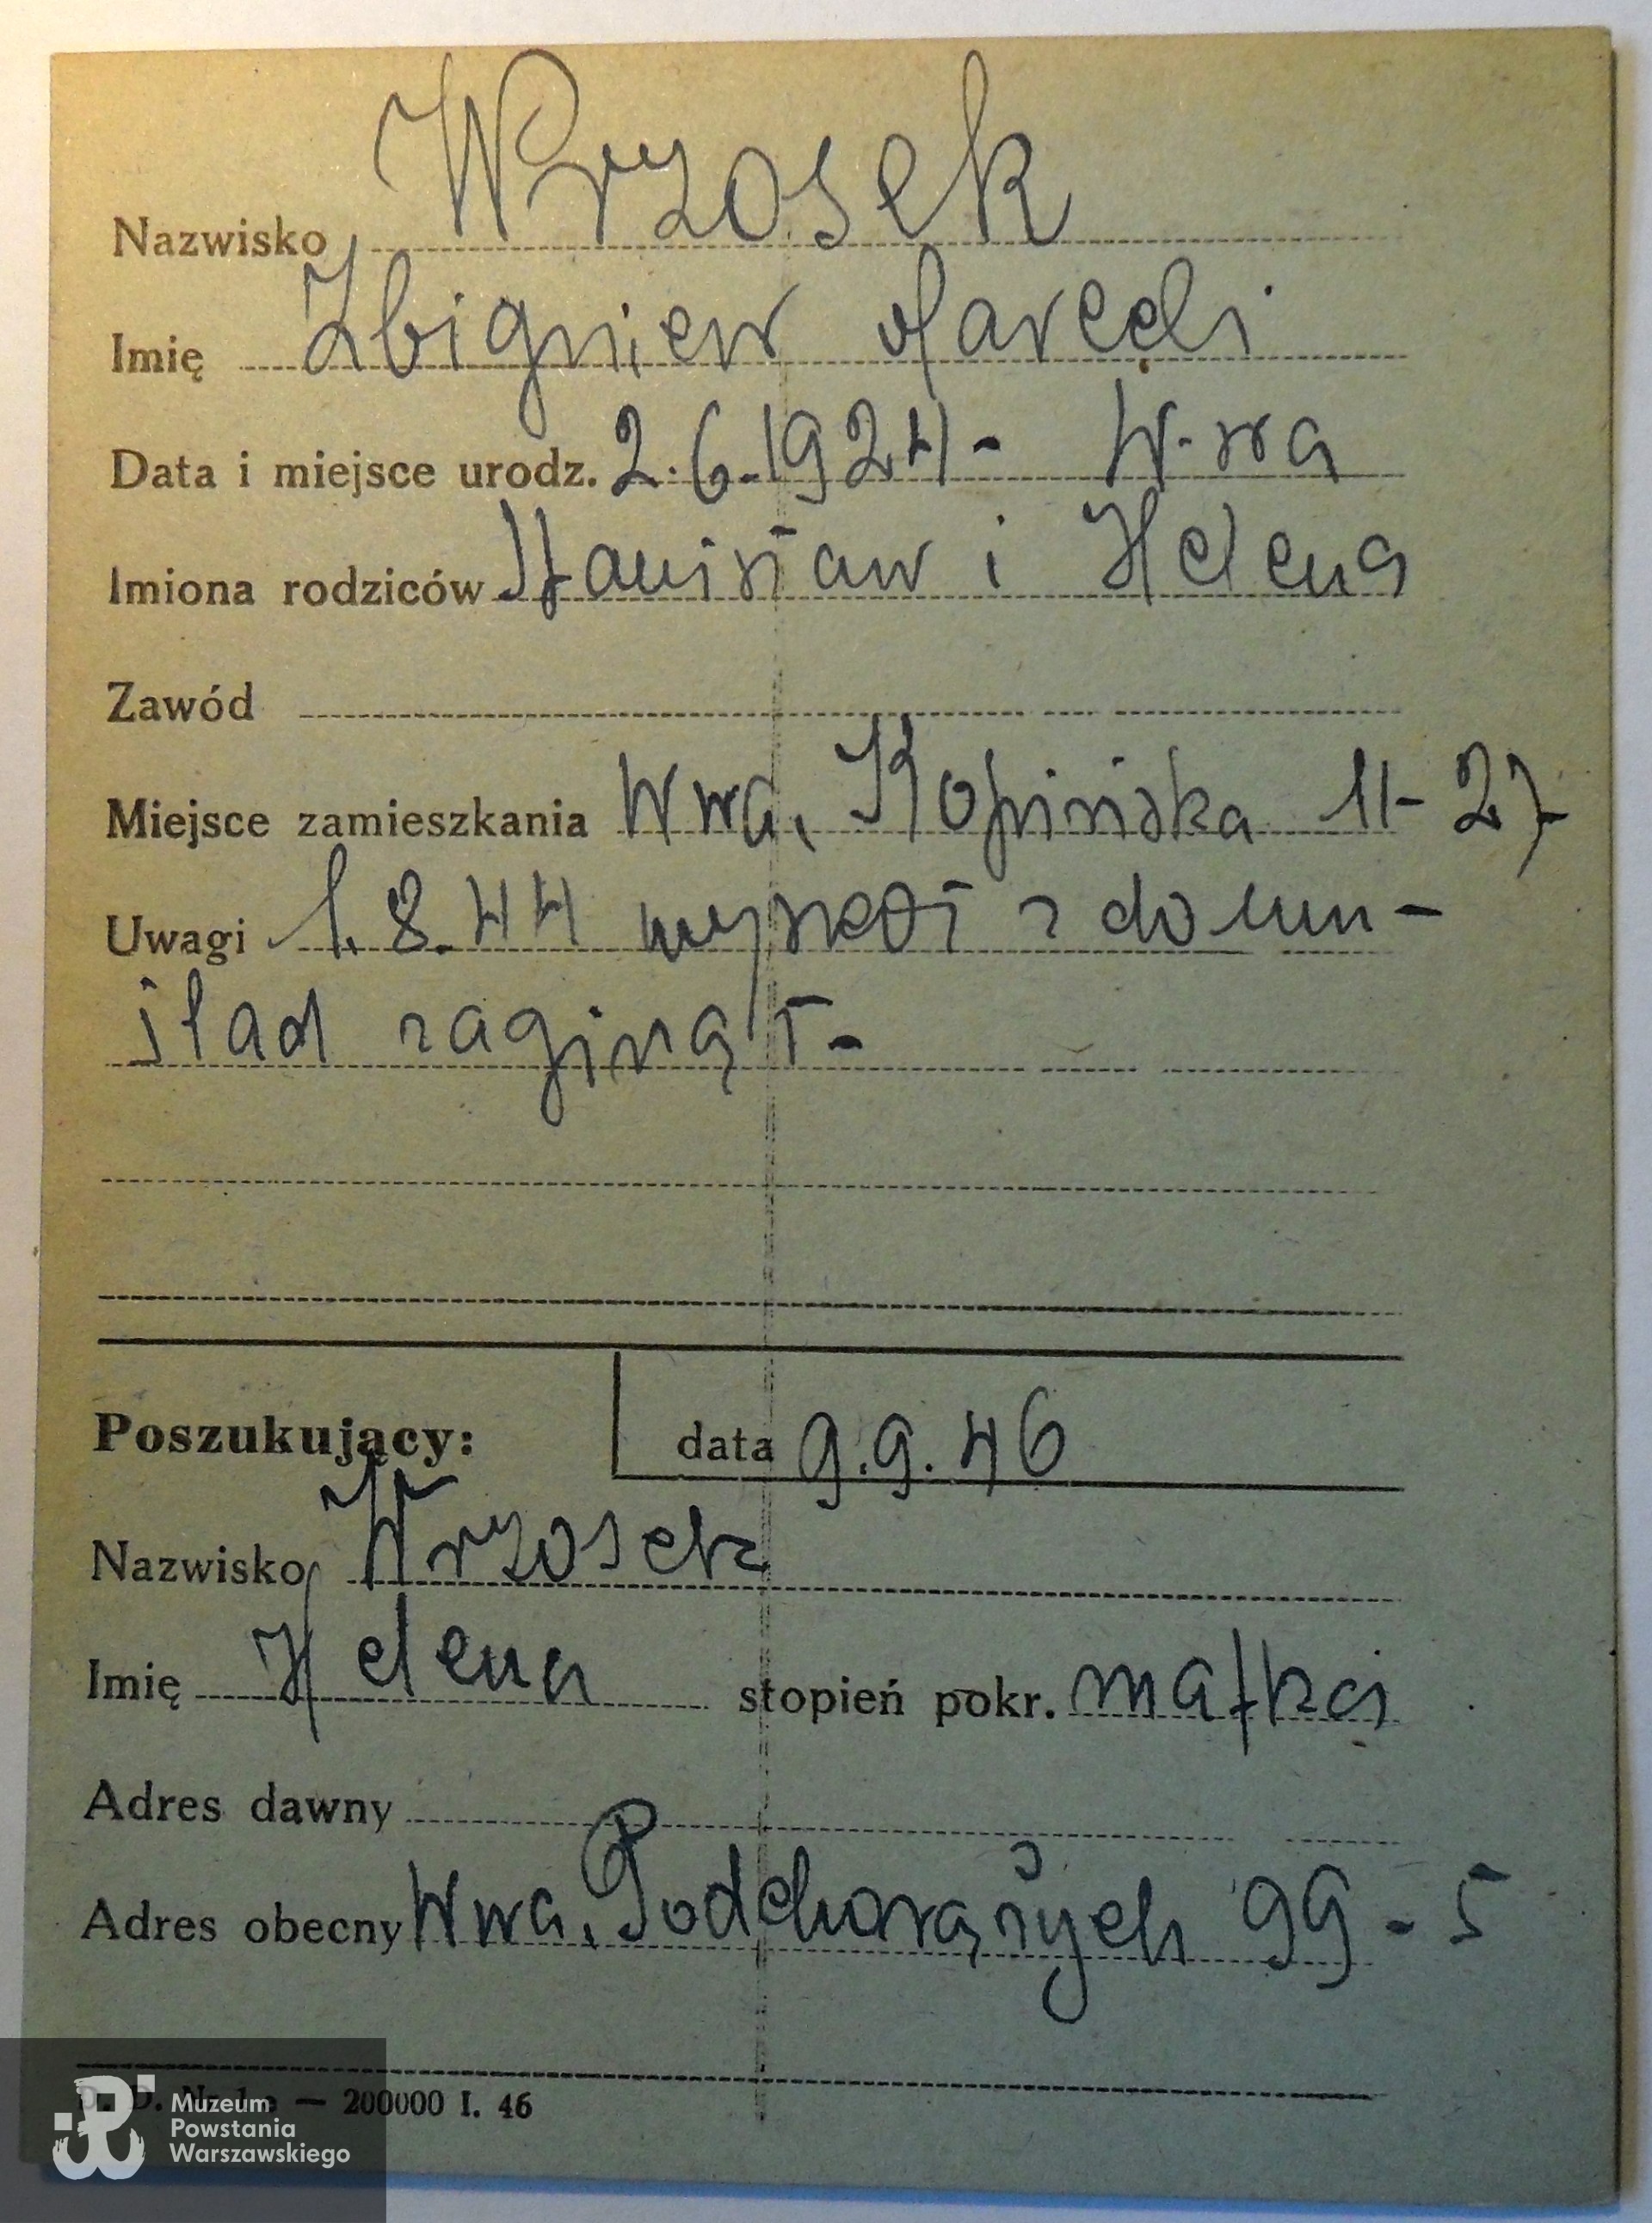 Nazwisko Wrzosek
Imię Zbigniew Marceli
Data i miejsce urodz. 2.6.1924 - W-wa
Imiona rodziców Stanisław i Helena
Zawód
Miejsce zamieszkania Wwa, Kopińska 11-27
Uwagi 1.8.44 wyszedł z domu -
ślad zaginął -
Poszukujący: data 9.9.46
Nazwisko Wrzosek
Imię Helena stopień pokr. matka
Adres dawny
Adres obecny Wwa, Podchorążych 99 - 5
— 200000 I. 46
Muzeum
Powstania
Warszawskiego